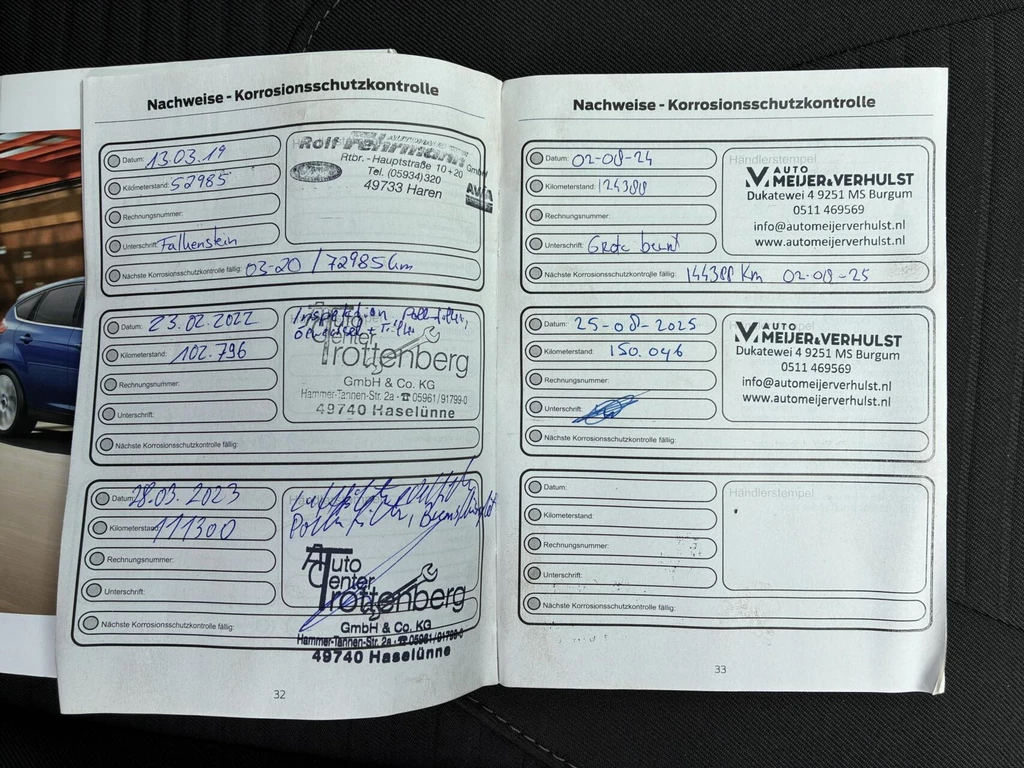 Nachweise - Korrosionsschutzkontrolle
Datum: 13.03.19
Kilometerstand: 52985
Rechnungsnummer:
Unterschrift: Falkenstein
Nächste Korrosionsschutzkontrolle fällig: 03-20 / 72985 km
Rolf Fehrmann GmbH
Rtbr. - Hauptstraße 10+20
Tel. (05934) 320
49733 Haren
Datum: 23.02.2022
Kilometerstand: 102.796
Rechnungsnummer:
Unterschrift:
Nächste Korrosionsschutzkontrolle fällig:
Inspektion Pollenfilter,
Auto
Center
Trottenberg
GmbH & Co. KG
Hammer-Tannen-Str. 2a · ☎ 05961/91799-0
49740 Haselünne
Datum: 28.03.2023
Kilometerstand: 111300
Rechnungsnummer:
Unterschrift:
Nächste Korrosionsschutzkontrolle fällig:
Auto
Center
Trottenberg
GmbH & Co. KG
Hammer-Tannen-Str. 2a · ☎ 05961/91799-0
49740 Haselünne
32
Nachweise - Korrosionsschutzkontrolle
Datum: 02-08-24
Kilometerstand: 124388
Rechnungsnummer:
Unterschrift: Grote beurt
Nächste Korrosionsschutzkontrolle fällig: 144388 Km 02-08-25
Händlerstempel
AUTO
MEIJER&VERHULST
Dukatewei 4 9251 MS Burgum
0511 469569
info@automeijerverhulst.nl
www.automeijerverhulst.nl
Datum: 25-08-2025
Kilometerstand: 150.046
Rechnungsnummer:
Unterschrift:
Nächste Korrosionsschutzkontrolle fällig:
AUTO
MEIJER&VERHULST
Dukatewei 4 9251 MS Burgum
0511 469569
info@automeijerverhulst.nl
www.automeijerverhulst.nl
Datum:
Kilometerstand:
Rechnungsnummer:
Unterschrift:
Nächste Korrosionsschutzkontrolle fällig:
Händlerstempel
33